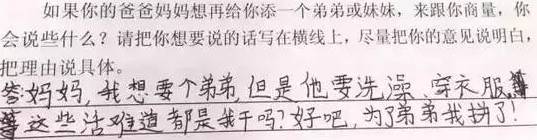 如果你的爸爸妈妈想再给你添一个弟弟或妹妹，来跟你商量，你
会说些什么？请把你想要说的话写在横线上，尽量把你的意见说明白，
把理由说具体。
答妈妈，我想要个弟弟，但是他要洗澡、穿衣服等
等这些活难道都是我干吗？好吧，为了弟弟我拼了！